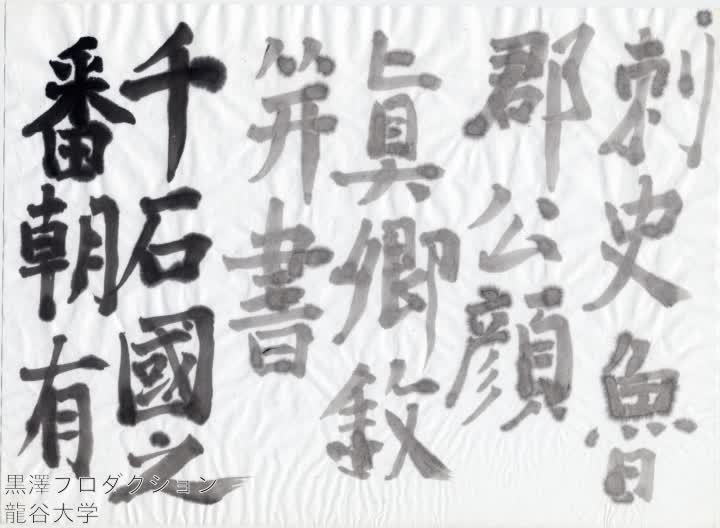 刺史魯
郡公顔
眞卿敘
笄書
千石國之
番朝有
黒澤プロダクション
龍谷大学